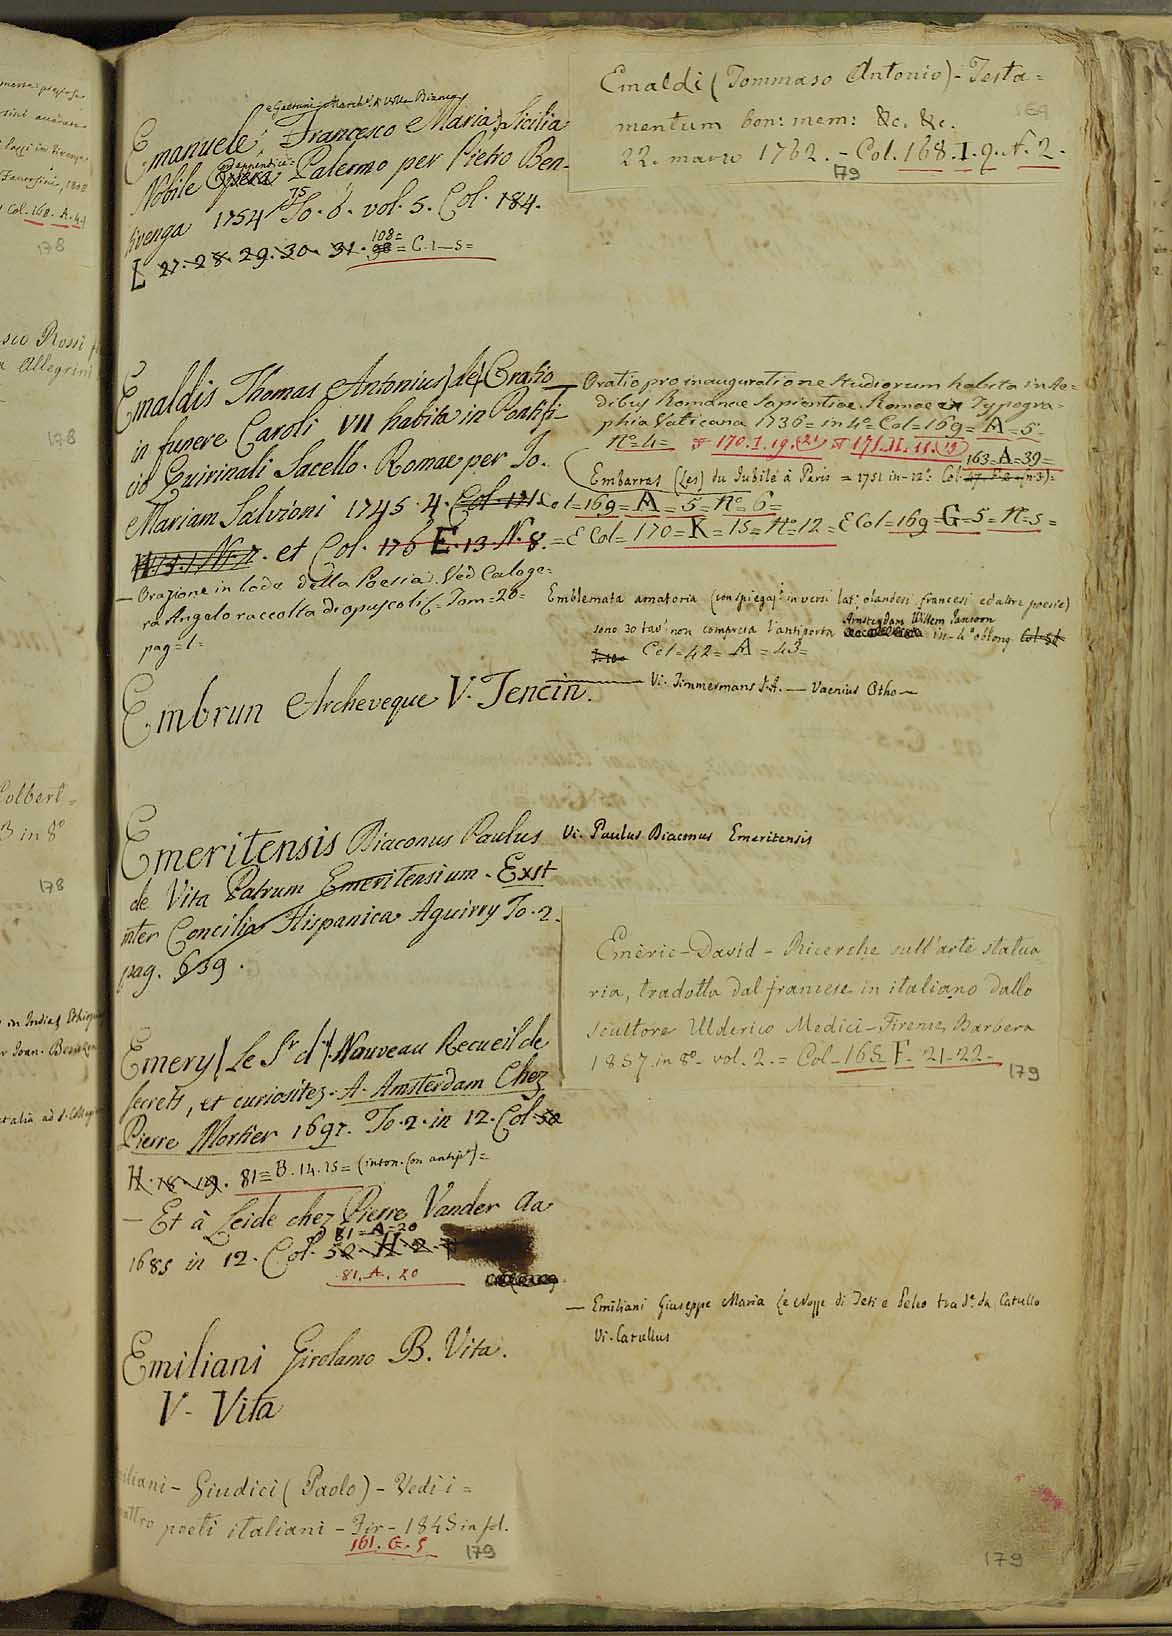 e Gaetani Marche di Villa Bianca
Emanuele: Francesco e Maria) Sicilia
Nobile Opera: Palermo per Pietro Ben-
ed appendice=
tivenga 1754 75 To. 6. vol. 5. Col. 184.
L 27. 28. 29. 30. 31. 98 = C. 1-5=
108=
Emaldis Thomas Antonius) de) Oratio
in funere Caroli VII habita in Pontifi-
cio Quirinali Sacello. Romae per Jo.
Mariam Salvioni 1745. 4. Col. 171
N. 7. et Col. 176 E. 13. N. 8.
— Orazione in lode della Poesia. Ved Caloge=
ra Angelo raccolta di opuscoli &= Tom=20=
pag=1=
Embrun Archeveque V. Tencin.
Emeritensis Diaconus Paulus
de Vita Patrum Emeritensium. Exst
inter Concilia Hispanica Aguirry To. 2.
pag. 639.
Emery (Le Sr. d') Nouveau Recueil de
secrets, et curiositez. A Amsterdam Chez
Pierre Mortier 1697. To. 2. in 12. Col. 52
H. 18. 19. 81=B. 14. 15= (inton. con antip.)=
— Et à Leide chez Pierre Vander Aa
81=A=20
1685 in 12. Col. 52. H. 2.
81. A. 20
Emiliani Girolamo B. Vita.
V. Vita
iliani - Giudici (Paolo) - Vedi i =
attro poeti italiani - Fir - 1845 in fol.
161. G. 5
179
Emaldi (Tommaso Antonio) - Testa=
mentum bon: mem: &c. &c.
22. marzo 1762. - Col. 168. I. 9. A. 2.
179
— Oratio pro inauguratione studiorum habita in Ae=
dibus Romanae Sapientiae. Romae ex Typogra=
phia Vaticana 1736= in 4º= Col=169= A=5=
Nº=4= 170. I. 19. (21) 171. II. 11. (19)
163=A=39=
Embarras (Les) du Jubilé à Paris = 1751 in-12º Col.
Col=169= A=5= Nº=6=
= E Col=170=K=15=Nº=12= E Col=169=G=5=N=5=
Emblemata amatoria (con spiegaz.i in versi lat: olandesi francesi ed altre poesie)
Amsterdam Willem Jansoon
sono 30 tav.e non compresa l'antiporta in-4º oblong Col-52
Col=42= A=43=
— Vi. Timmermans J. A. — Vaenius Otho —
Vi. Paulus Diaconus Emeritensis
Eméric-David - Ricerche sull'arte statua
ria, tradotta dal francese in italiano dallo
scultore Ulderico Medici - Firenze, Barbera
1857. in 8º. vol. 2. = Col. 165 F. 21-22.
179
— Emiliani Giuseppe Maria Le Nozze di Teti e Peleo trad.e da Catullo
Vi. Catullus
179
Col. 168. A. 4.
178
sco Rossi
Allegrini
178
Colbert=
in 8º
178